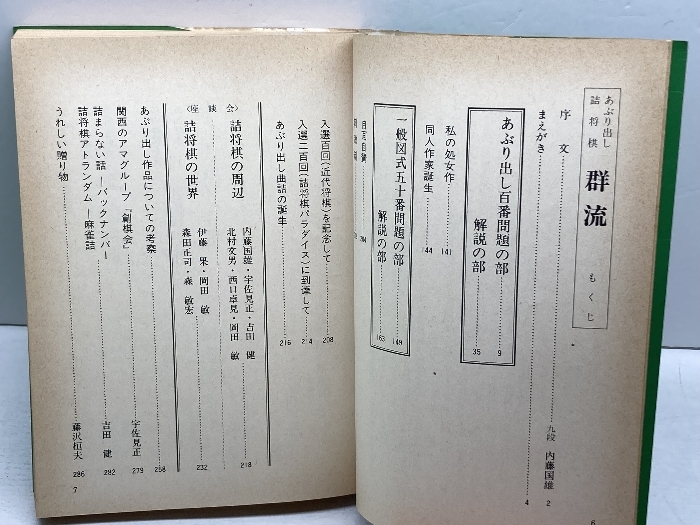 あぶり出し
詰将棋
群流
もくじ
序文……九段 内藤国雄 2
まえがき……4
あぶり出し百番問題の部……9
解説の部……35
私の処女作……141
同人作家誕生……144
一般図式五十番問題の部……149
解説の部……163
6
入選百回(近代将棋)を記念して……208
入選二百回(詰将棋パラダイス)に到達して……214
あぶり出し曲詰の誕生……216
〈座談会〉
詰将棋の周辺……内藤国雄・宇佐見正・吉田 健
北村文男・西口卓見・岡田 敏 218
詰将棋の世界……伊藤 果・岡田 敏
森田正司・森 敏宏 232
あぶり出し作品についての考察……258
関西のアマグループ「創棋会」……宇佐見正 279
詰まらない話―バックナンバー……吉田 健 282
詰将棋アトランダム―麻雀詰
うれしい贈り物……藤沢桓夫 286
7